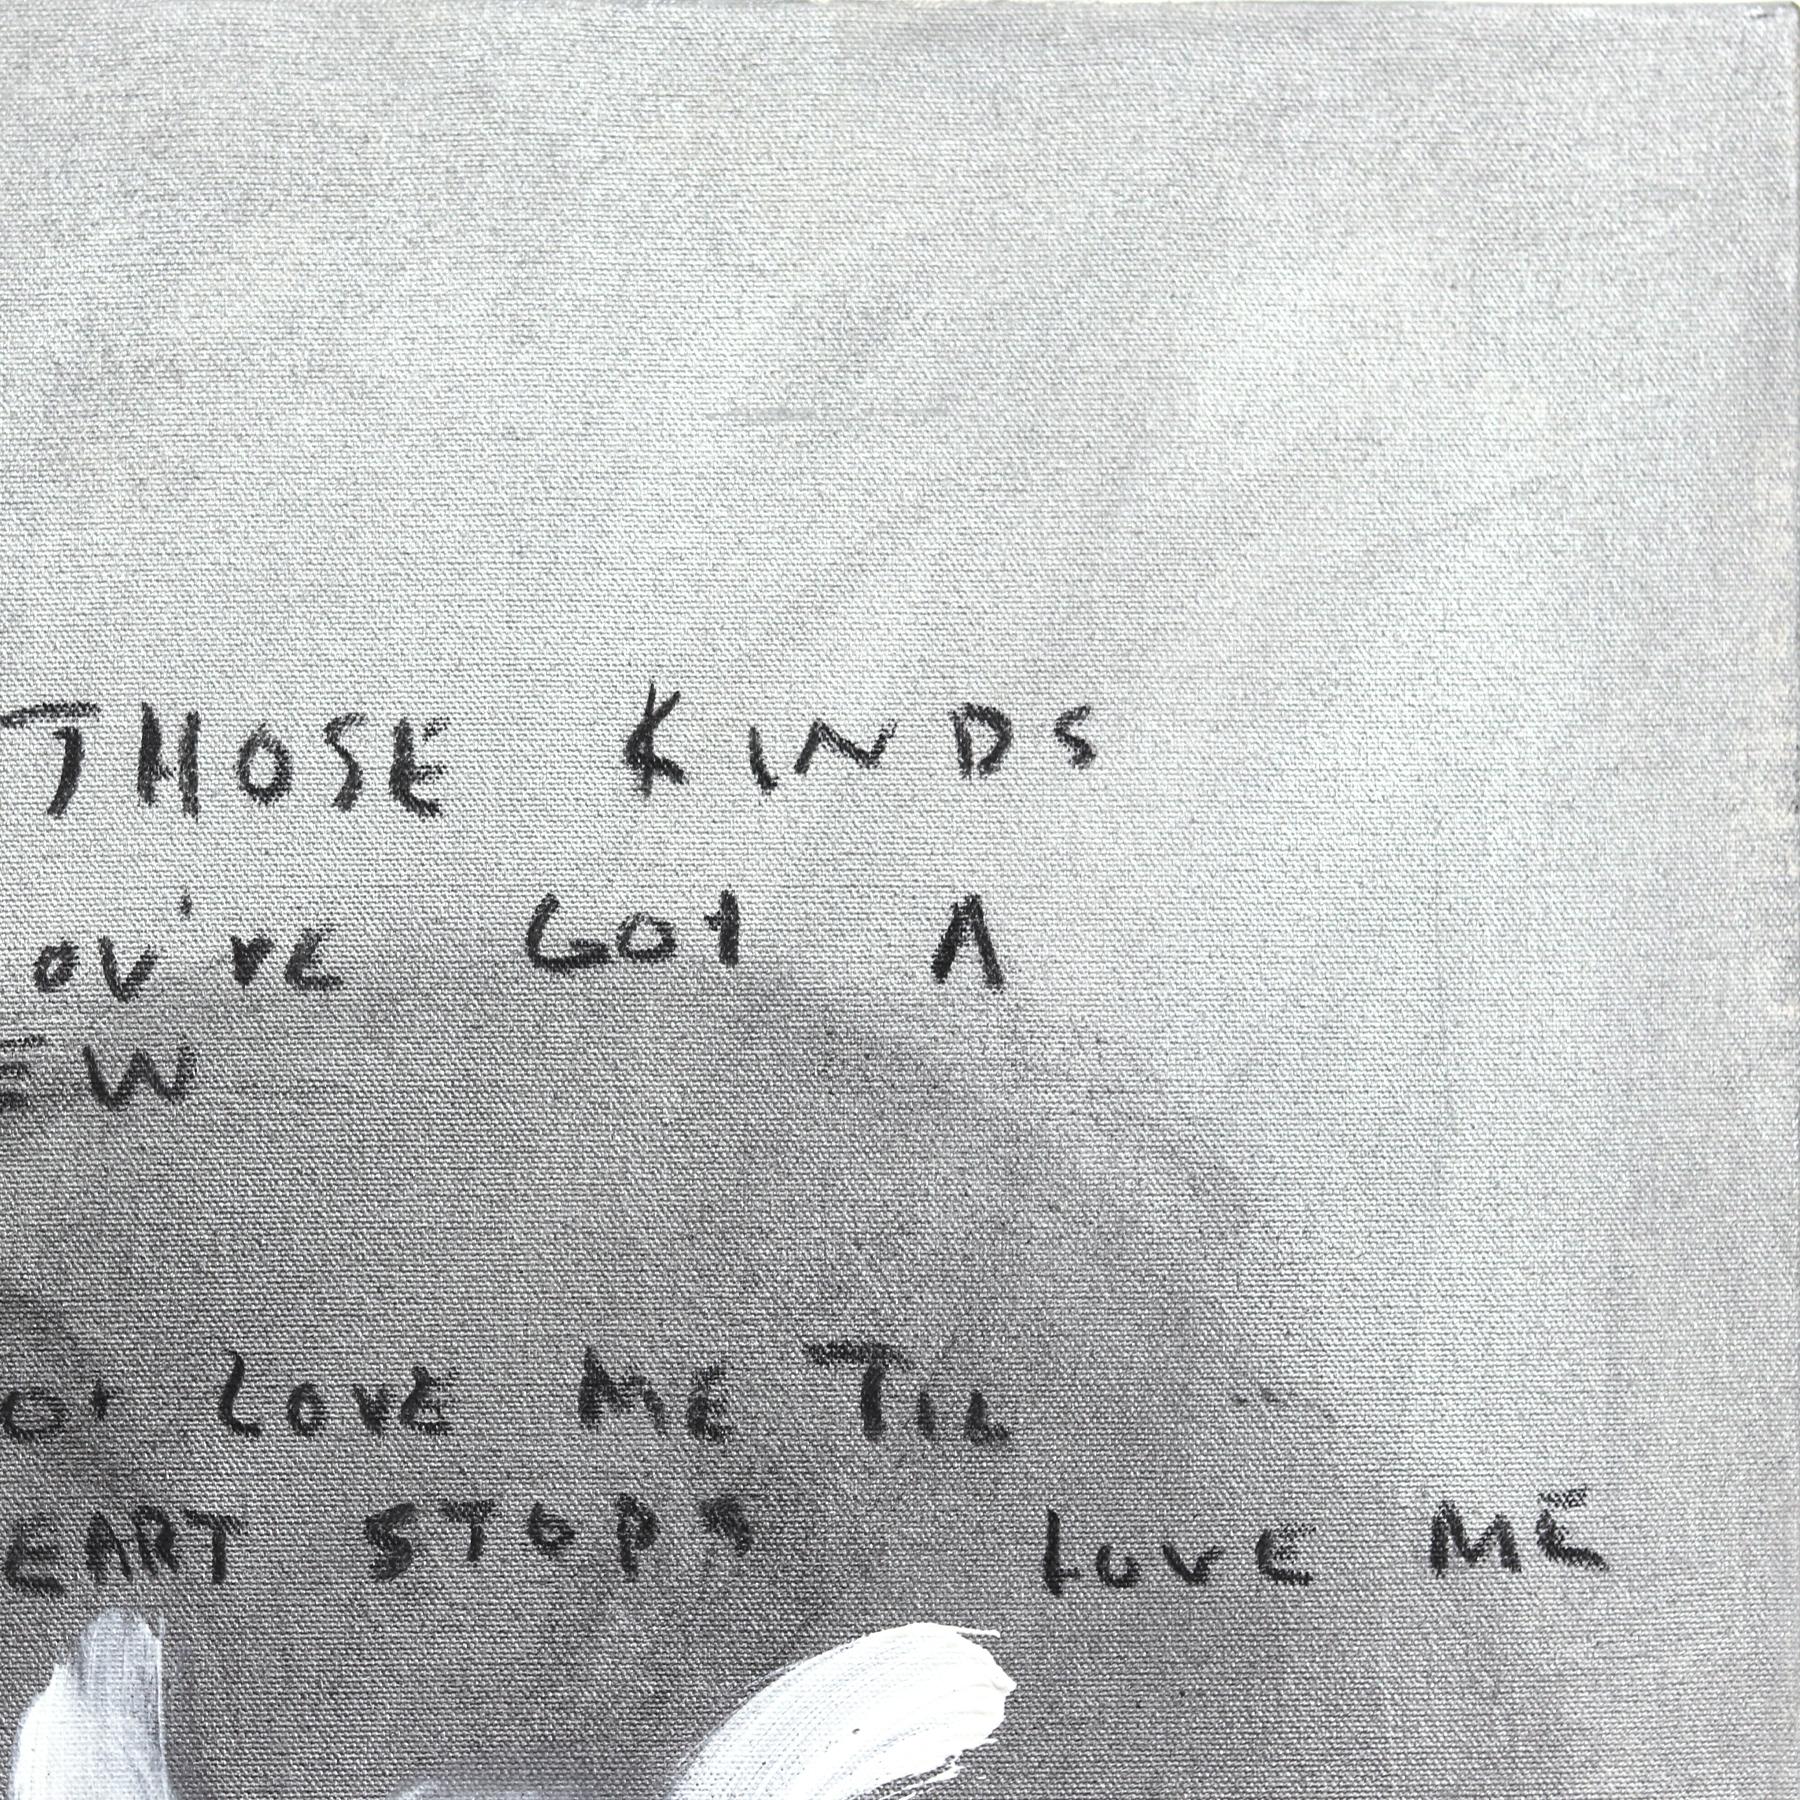 THOSE KINDS
OU'VE GOT A
EW
OT LOVE ME TIL
EART STOPS LOVE ME